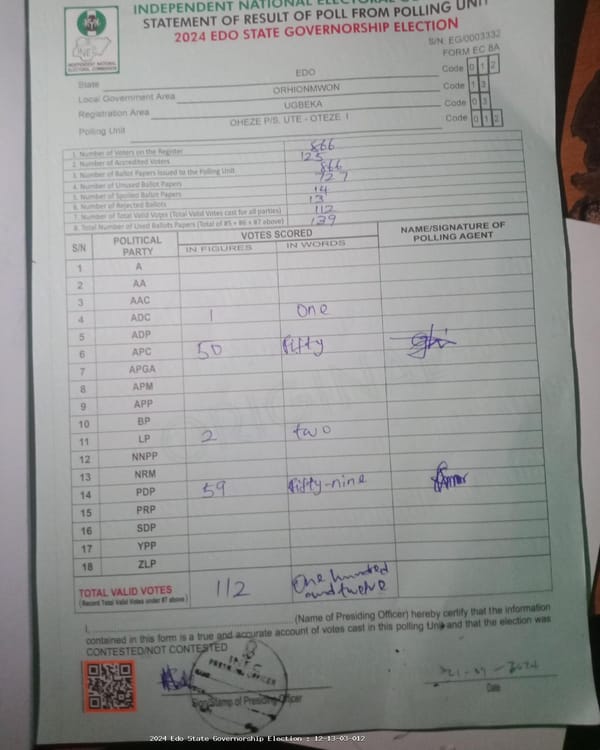 INDEPENDENT NATIONAL ELECTORAL
STATEMENT OF RESULT OF POLL FROM POLLING UNIT
2024 EDO STATE GOVERNORSHIP ELECTION
INEC
INDEPENDENT NATIONAL ELECTORAL COMMISSION
S/N: EG/0003332
FORM EC 8A
State EDO Code 0 1 2
Local Government Area ORHIONMWON Code 1 3
Registration Area UGBEKA Code 0 3
Polling Unit OHEZE P/S, UTE - OTEZE I Code 0 1 2
1. Number of Voters on the Register 866
2. Number of Accredited Voters 125
3. Number of Ballot Papers Issued to the Polling Unit 866
4. Number of Unused Ballot Papers 727
5. Number of Spoiled Ballot Papers 14
6. Number of Rejected Ballots 13
7. Number of Total Valid Votes (Total Valid Votes cast for all parties) 112
8. Total Number of Used Ballots Papers (Total of #5 + #6 + #7 above) 139
S/N POLITICAL PARTY VOTES SCORED NAME/SIGNATURE OF POLLING AGENT
IN FIGURES IN WORDS
1 A
2 AA
3 AAC
4 ADC 1 One
5 ADP
6 APC 50 fifty
7 APGA
8 APM
9 APP
10 BP
11 LP 2 two
12 NNPP
13 NRM
14 PDP 59 fifty-nine
15 PRP
16 SDP
17 YPP
18 ZLP
TOTAL VALID VOTES 112 One hundred and twelve
(Record Total Valid Votes under #7 above)
I, (Name of Presiding Officer) hereby certify that the information
contained in this form is a true and accurate account of votes cast in this polling Unit and that the election was
CONTESTED/NOT CONTESTED
INEC
PRESIDING OFFICER
Sign/Stamp of Presiding Officer
Date
2024 Edo State Governorship Election : 12-13-03-012